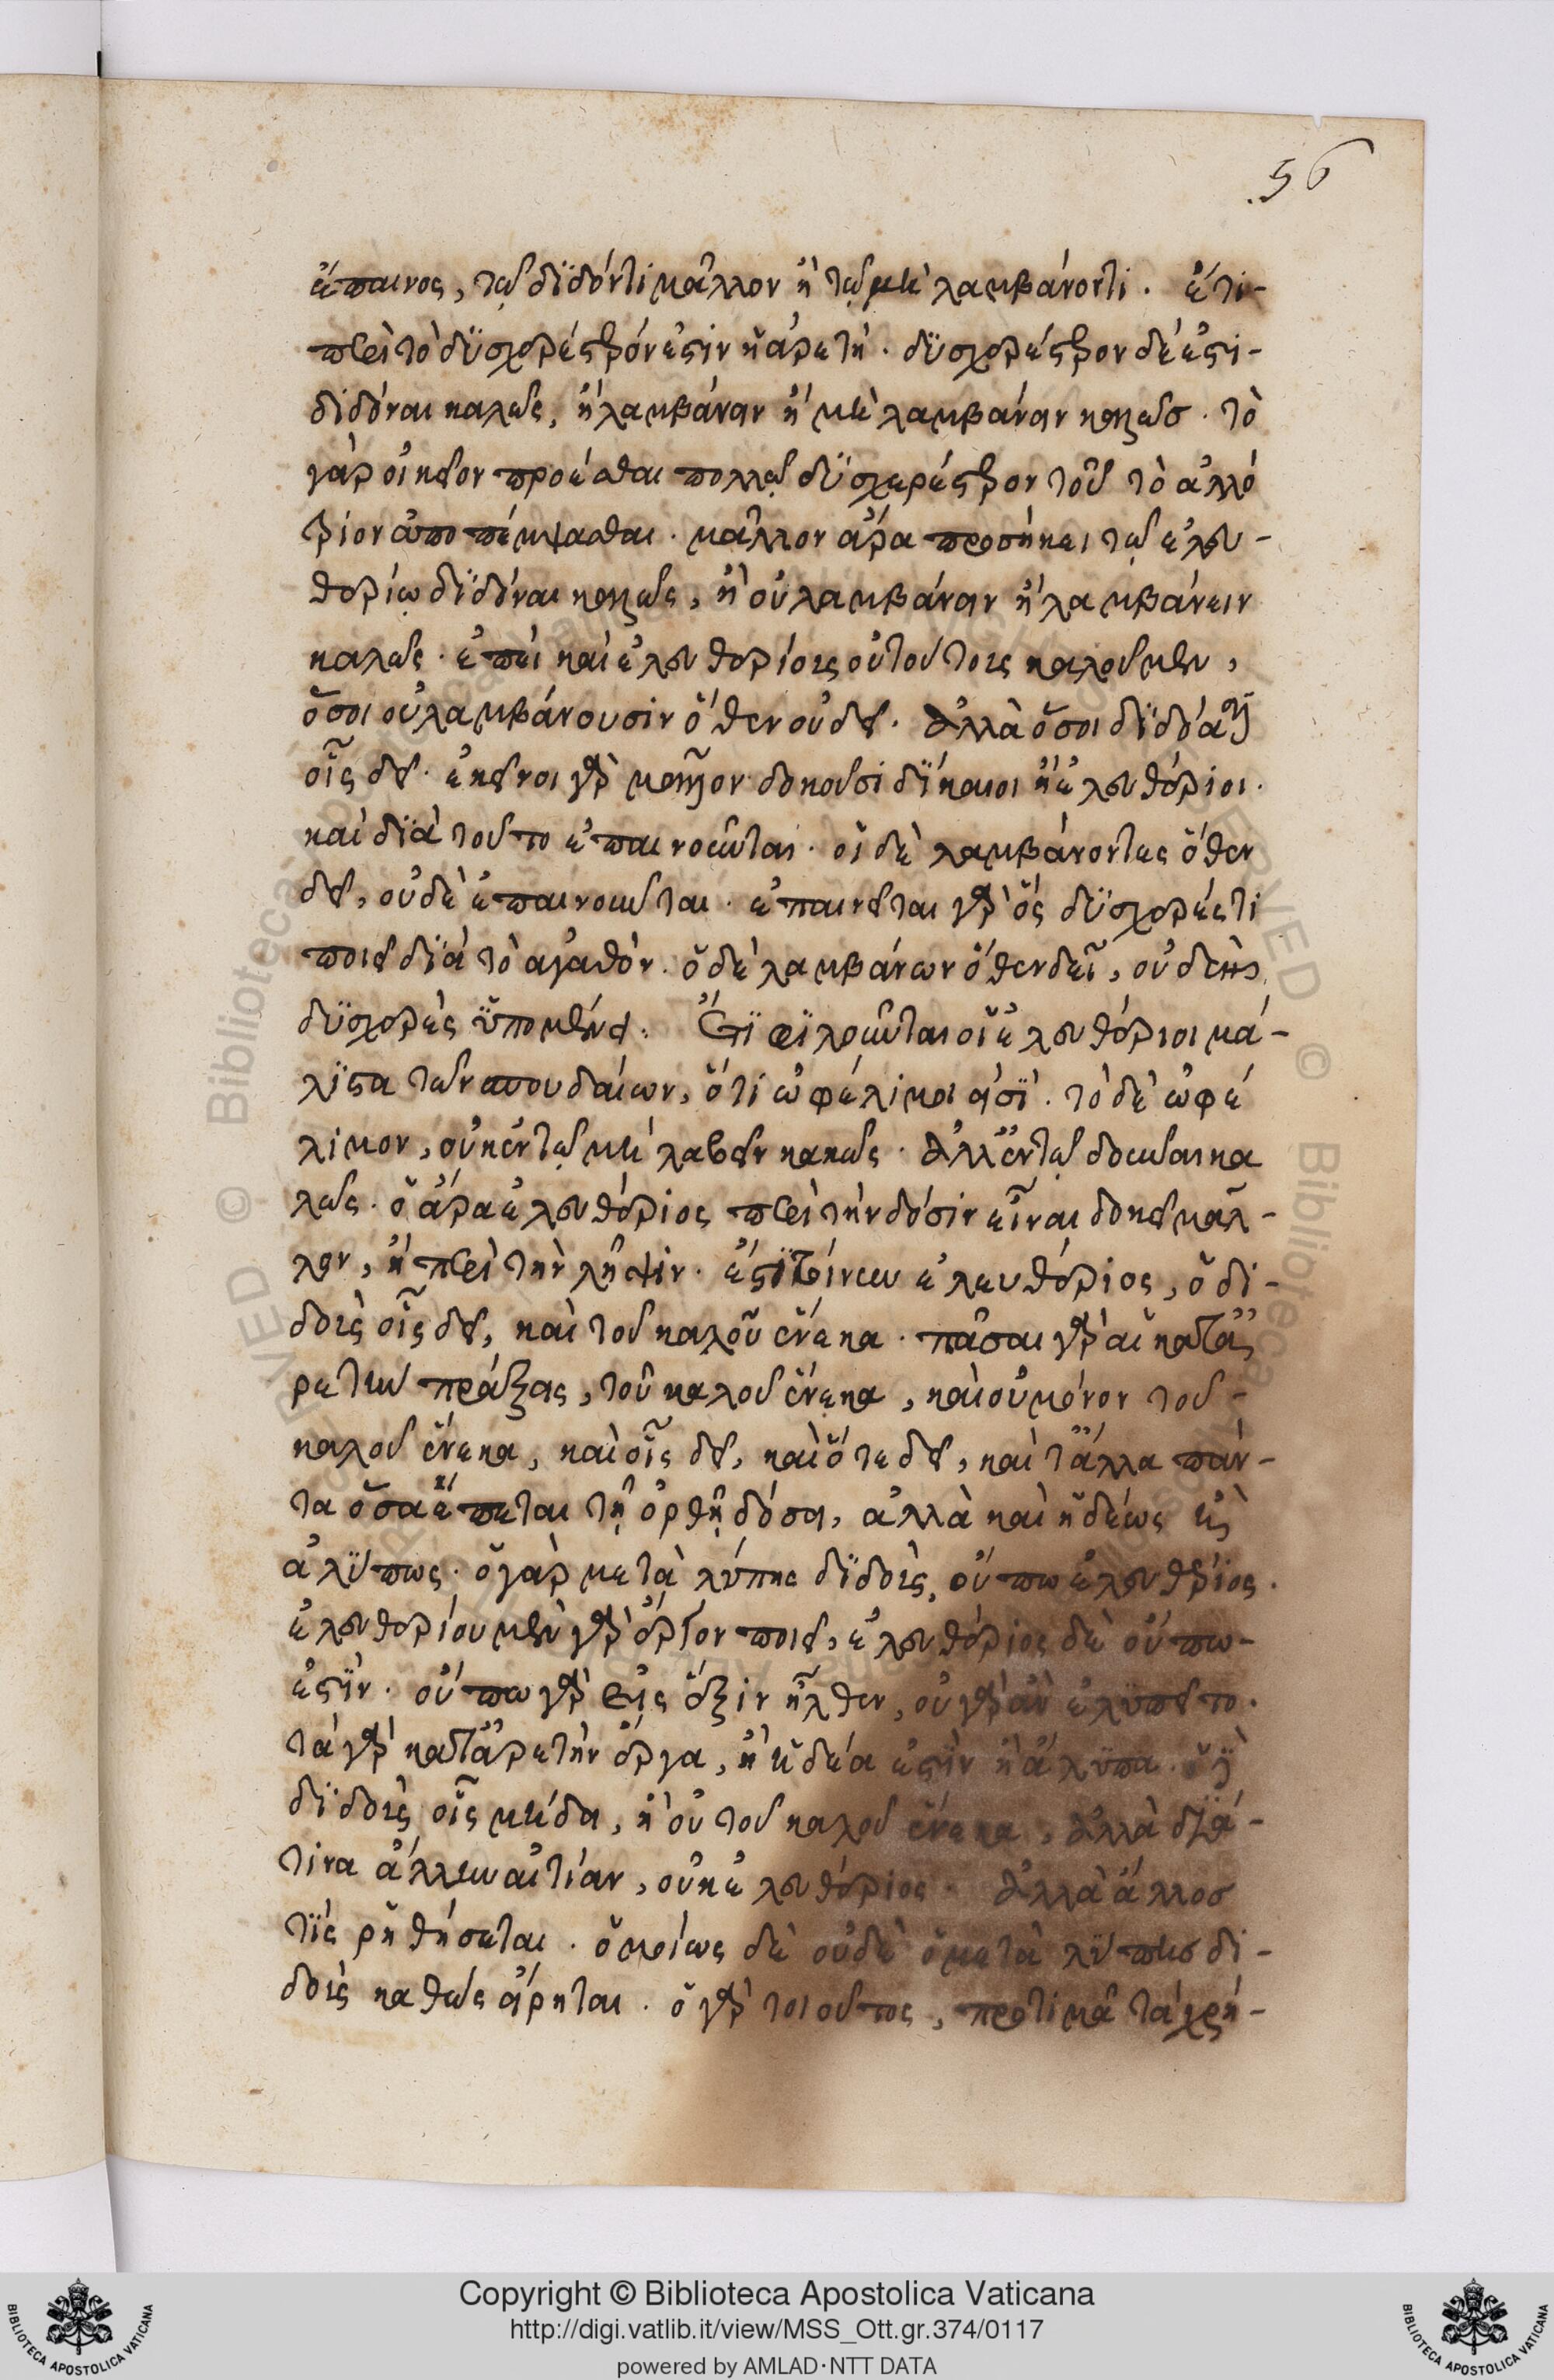 56
ἔπαινος, τῷ διδόντι μᾶλλον ἢ τῷ μὴ λαμβάνοντι. ἔτι-
περὶ τὸ δυσχερέστερόν ἐστιν ἡ ἀρετή. δυσχερέστερον δέ ἐστι-
διδόναι καλῶς, ἢ λαμβάνειν ἢ μὴ λαμβάνειν καλῶς. τὸ
γὰρ οἰκεῖον προέσθαι πολλῷ δυσχερέστερον τοῦ τὸ ἀλλό
τριον ἀποπέμψασθαι. μᾶλλον ἄρα προσήκει τῷ ἐλευ-
θερίῳ διδόναι καλῶς, ἢ οὐ λαμβάνειν ἢ λαμβάνειν
καλῶς. ἐπεὶ καὶ ἐλευθερίοις οὐ τούτοις καλοῦμεν,
ὅσοι οὐ λαμβάνουσιν ὅθεν οὐ δεῖ. ἀλλὰ ὅσοι διδόασιν
οἷς δεῖ. ἐκεῖνοι γὰρ μᾶλλον δοκοῦσι δίκαιοι ἢ ἐλευθέριοι.
καὶ διὰ τοῦτο ἐπαινοῦνται. οἱ δὲ λαμβάνοντες ὅθεν
δεῖ, οὐδὲ ἐπαινοῦνται. ἐπαινεῖται γὰρ ὃς δυσχερές τι
ποιεῖ διὰ τὸ ἀγαθόν. ὁ δὲ λαμβάνων ὅθεν δεῖ, οὐδὲν
δυσχερὲς ὑπομένει. Ἔτι φιλοῦνται οἱ ἐλευθέριοι μά-
λιστα τῶν σπουδαίων, ὅτι ὠφέλιμοι εἰσί. τὸ δὲ ὠφέ
λιμον, οὐκ ἐν τῷ μὴ λαβεῖν κακῶς. ἀλλ' ἐν τῷ δοῦναι κα
λῶς. ὁ ἄρα ἐλευθέριος περὶ τὴν δόσιν εἶναι δοκεῖ μᾶλ-
λον, ἢ περὶ τὴν λῆψιν. ἔστι τοίνυν ἐλευθέριος, ὁ δι-
δοὺς οἷς δεῖ, καὶ τοῦ καλοῦ ἕνεκα. πᾶσαι γὰρ αἱ κατ' ἀ
ρετὴν πράξεις, τοῦ καλοῦ ἕνεκα, καὶ οὐ μόνον τοῦ-
καλοῦ ἕνεκα, καὶ οἷς δεῖ, καὶ ὅτε δεῖ, καὶ τἄλλα πάν-
τα ὅσα ἕπεται τῇ ὀρθῇ δόσει, ἀλλὰ καὶ ἡδέως καὶ
ἀλύπως. ὁ γὰρ μετὰ λύπης διδοὺς, οὔπω ἐλευθέριος.
ἐλευθερίου μὲν γὰρ ἔργον ποιεῖ, ἐλευθέριος δὲ οὔπω-
ἐστὶν. οὔπω γὰρ εἰς ἕξιν ἦλθεν, οὐ γὰρ ἂν ἐλυπεῖτο.
τὰ γὰρ κατ' ἀρετὴν ἔργα, ἢ ἡδέα ἐστὶν ἢ ἄλυπα. ὁ δὲ
διδοὺς οἷς μὴ δεῖ, ἢ οὐ τοῦ καλοῦ ἕνεκα, ἀλλὰ διά-
τινα ἄλλην αἰτίαν, οὐκ ἐλευθέριος. ἀλλὰ ἄλλος
τὶς ῥηθήσεται. ὁμοίως δὲ οὐδὲ ὁ μετὰ λύπης δι-
δοὺς καθὼς εἴρηται. ὁ γὰρ τοιοῦτος, προτιμᾷ τὰ χρή-
Copyright © Biblioteca Apostolica Vaticana
http://digi.vatlib.it/view/MSS_Ott.gr.374/0117
powered by AMLAD·NTT DATA
BIBLIOTECA APOSTOLICA VATICANA
BIBLIOTECA APOSTOLICA VATICANA